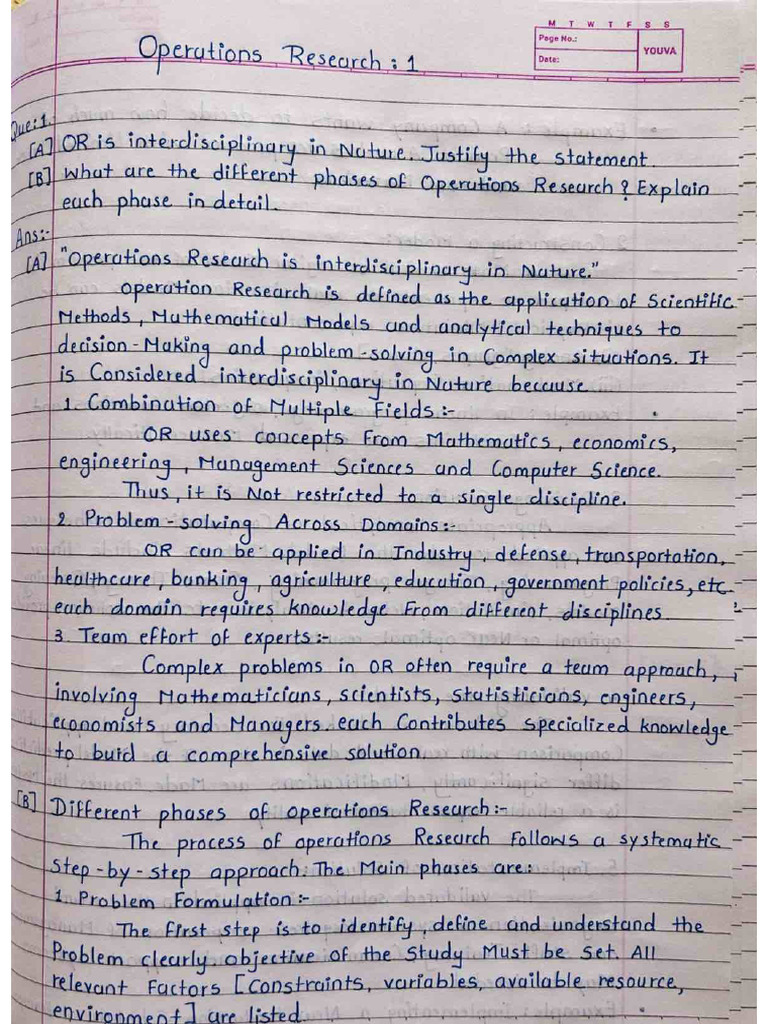 M T W T F S S
Page No.:
Date:
YOUVA
Operations Research : 1
Que:1.
[A] OR is interdisciplinary in Nature. Justify the statement
[B] What are the different phases of Operations Research? Explain
each phase in detail.
Ans:-
[A] "Operations Research is interdisciplinary in Nature."
operation Research is defined as the application of Scientific
Methods, Mathematical Models and analytical techniques to
decision-Making and problem-solving in Complex situations. It
is Considered interdisciplinary in Nature because
1. Combination of Multiple Fields:-
OR uses concepts From Mathematics, economics,
engineering, Management Sciences and Computer Science.
Thus, it is Not restricted to a single discipline.
2. Problem-solving Across Domains:-
OR can be applied in Industry, defense, transportation,
healthcare, banking, agriculture, education, government policies, etc.
each domain requires knowledge From different disciplines.
3. Team effort of experts:-
Complex problems in OR often require a team approach,
involving Mathematicians, scientists, statisticians, engineers,
economists and Managers. each Contributes specialized knowledge
to buid a comprehensive solution.
[B] Different phases of operations Research:-
The process of operations Research Follows a systematic
Step-by-step approach. The Main phases are:
1. Problem Formulation:-
The First step is to identify, define and understand the
Problem clearly. objective of the Study Must be Set. All
relevant Factors [Constraints, variables, available resource,
environment] are listed.